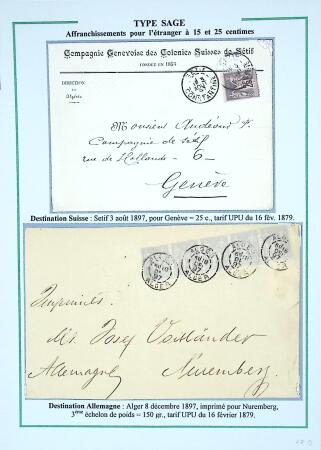 TYPE SAGE
Affranchissements pour l'étranger à 15 et 25 centimes
Compagnie Genevoise des Colonies Suisses de Sétif
FONDÉE EN 1853
DIRECTION
en
Algérie
CONSTANTINE
Monsieur
Compagnie de Sétif
rue de Hollande - 6 -
Genève
Destination Suisse : Setif 3 août 1897, pour Genève = 25 c., tarif UPU du 16 fév. 1879.
ALGER ALGER
Imprimés
Mr. Josef
Allemagne Nuremberg
Destination Allemagne : Alger 8 décembre 1897, imprimé pour Nuremberg,
3ème échelon de poids = 150 gr., tarif UPU du 16 février 1879.